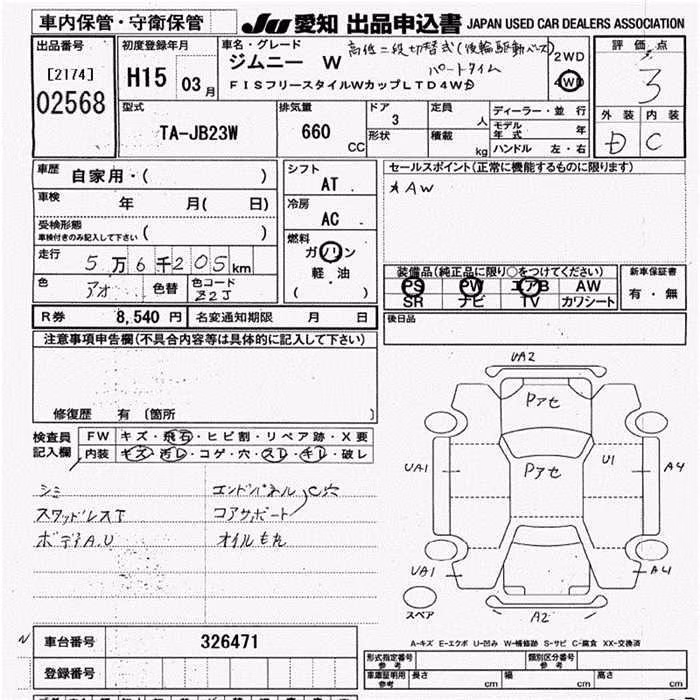 車内保管・守衛保管
JU 愛知 出品申込書 JAPAN USED CAR DEALERS ASSOCIATION
出品番号
[2174]
02568
初度登録年月
H15 03月
車名・グレード
ジムニー W
高低二段切替式(後輪駆動ベース)
パートタイム
FISフリースタイルWカップLTD4WD
2WD
4WD
評価点
3
外装 内装
D C
型式
TA-JB23W
排気量
660
CC
ドア
3
形状
定員
人
積載
kg
ディーラー・並行
モデル年式 年
ハンドル 左・右
車歴
自家用・( )
車検 年 月( 日)
受検形態
車検付きのみ記入して下さい ( )
走行
5万6千205km
色
アオ
色替
色コード
Z2J
シフト
AT
冷房
AC
燃料
ガソリン
軽・油
( )
セールスポイント(正常に機能するものに限ります)
AW
装備品(純正品に限り○をつけてください)
PS PW エアB AW
SR ナビ TV カワシート
新車保証書
有・無
後日品
R券 8,540円 名変通知期限 月 日
注意事項申告欄(不具合内容等は具体的に記入して下さい)
修復歴 有 〔箇所 〕
検査員記入欄
FW キズ・飛石・ヒビ割・リペア跡・X要
内装 キズ・汚レ・コゲ・穴・スレ・キレ・破レ
シミ
スタッドレスT
ボデーA.U
エンドパネル
コアサポート
C穴
オイルモレ
UA2
Pアセ
Pアセ
UA1
U1
A4
UA1
A4
A2
スペア
A-キズ E-エクボ U-凹み W-補修跡 S-サビ C-腐食 XX-交換済
N
車台番号 326471
登録番号
形式指定番号
参考
類別区分番号
参考
車庫証明用
参考
長さ cm 幅 cm 高さ cm